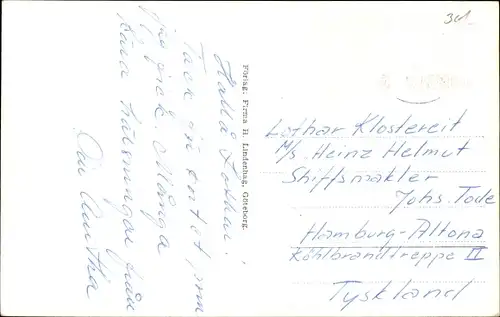 Hallå Lothar!
Tack för kortet, som
jag fick. Många
kära hälsningar från
Förlag. Firma H. Lindenhag, Göteborg.
Lothar Klostereit
M/s. Heinz Helmut
Shiffsmakler
Johs. Tode
Hamburg-Altona
Köhlbrandtreppe II
Tyskland